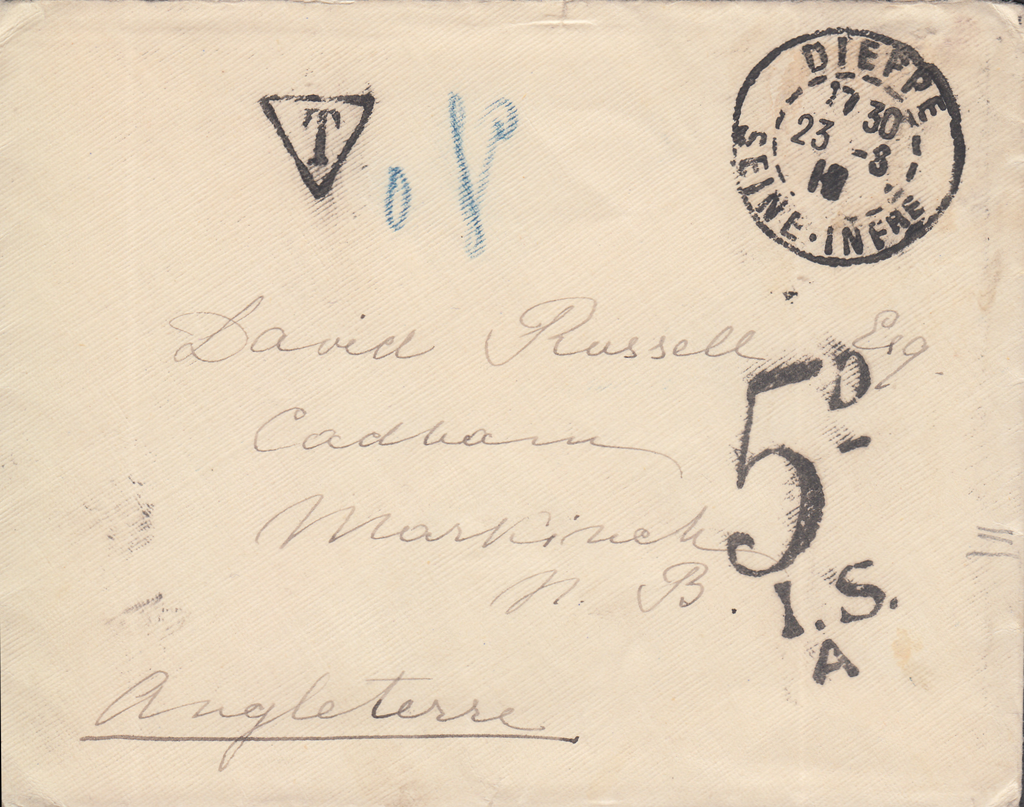 DIEPPE
17 30
23 -8
SEINE-INFRE
T
David Russell Esq.
Cadham
Markinch
N. B.
Angleterre
5D
I.S.
A